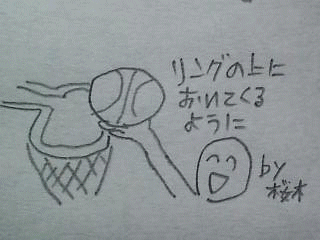 リングの上に
おいてくる
ように
by
桜木